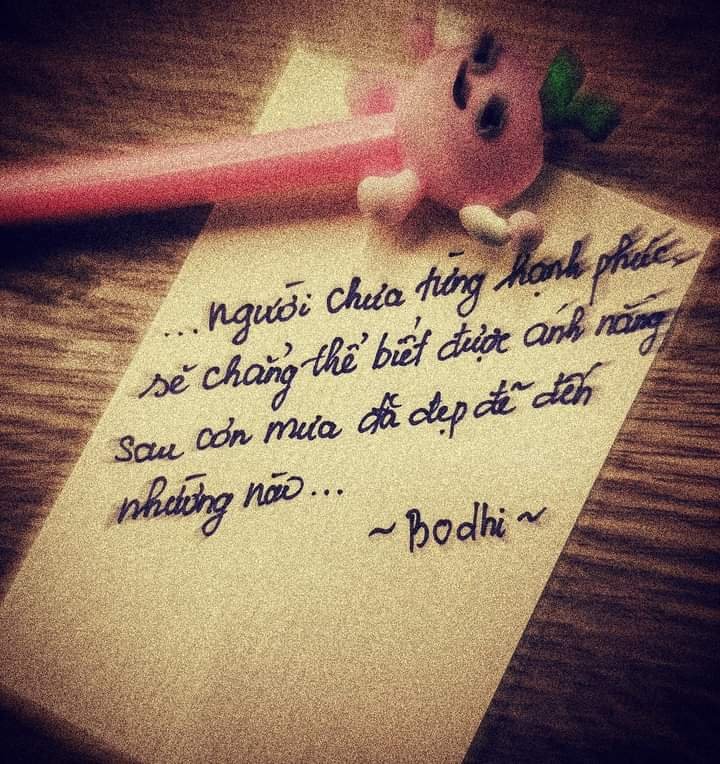 ...người chưa từng hạnh phúc,
sẽ chẳng thể biết được ánh nắng
sau cơn mưa đã đẹp đẽ đến
nhường nào...
~Bodhi~